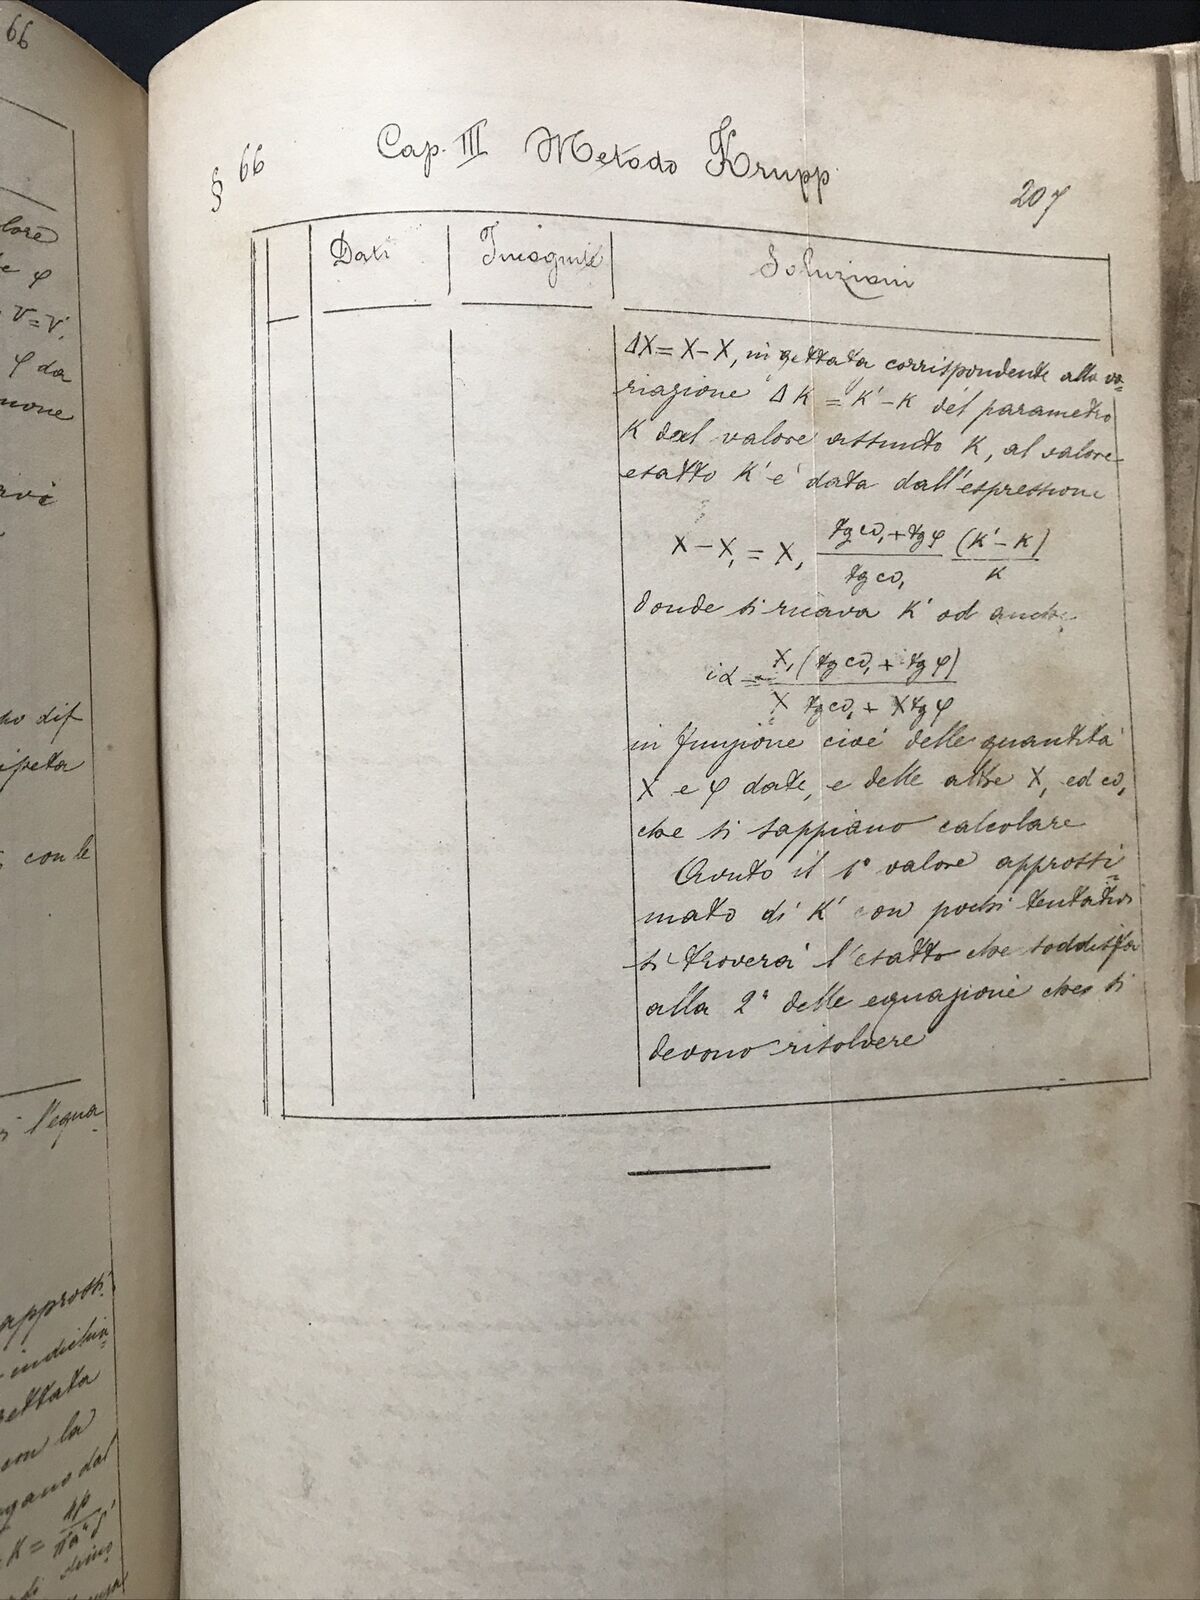 66
lore
e φ
V=V,
φ da
mone
avi
dif
ipeta
con le
l'equa
approssi
indichia
gettata
con la
gano dal
K = 4p / πa²δ'
di
§ 66
Cap. III Metodo Krupp
207
Dati Incognite Soluzioni
ΔX = X – X, in gettata corrispondente alla va=
riazione ΔK = K' – K del parametro
K dal valore assunto K, al valore
esatto K' e' data dall'espressione
X – X, = X, (tg ω, + tg φ) / tg ω, (K' – K) / K
donde si ricava K' od anche
iα = X, (tg ω, + tg φ) / X tg ω, + X tg φ
in funzione cioé delle quantitá
X e φ date, e delle altre X, ed ω,
che si sappiano calcolare
Avuto il 1° valore approssi=
mato di K' con pochi tentativi
si troverá l'esatto che soddisfa
alla 2ª delle equazioni che si
devono risolvere